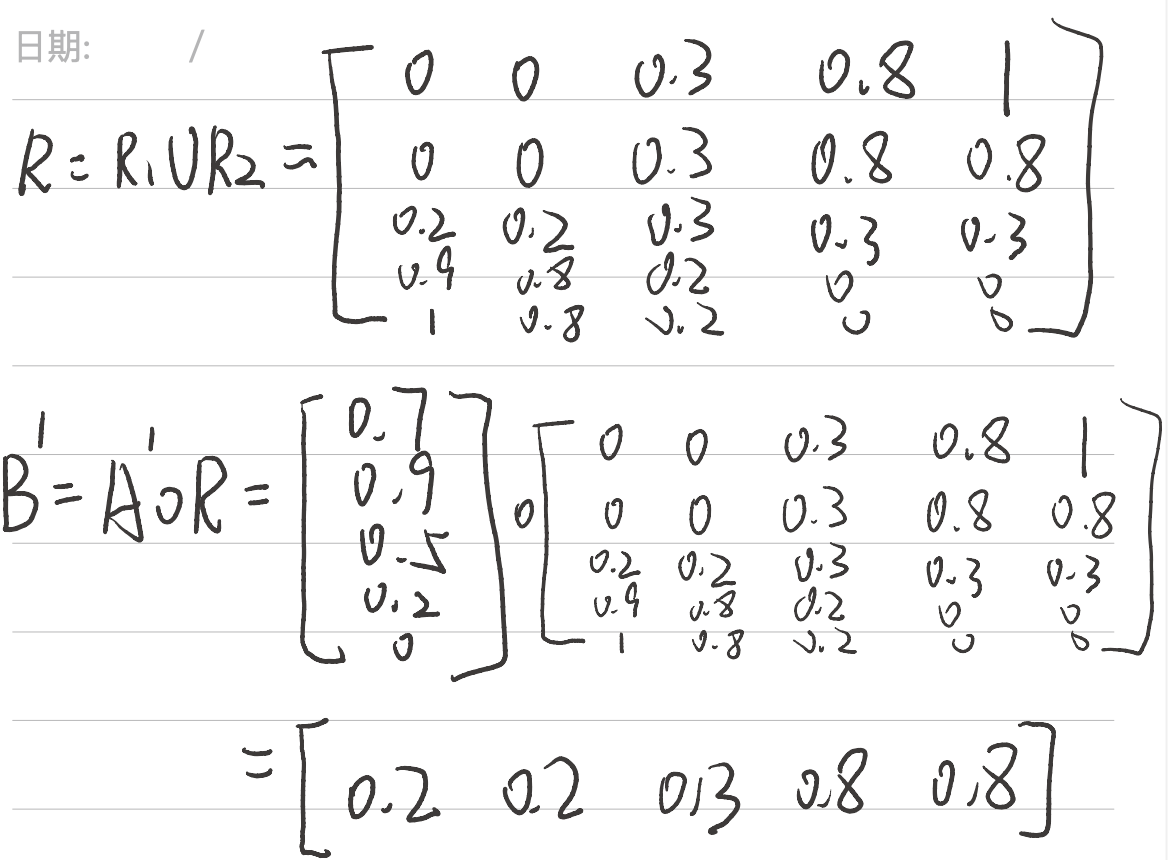 日期: /
0 0 0.3 0.8 1
R = R₁UR₂ = 0 0 0.3 0.8 0.8
0.2 0.2 0.3 0.3 0.3
0.9 0.8 0.2 0 0
1 0.8 0.2 0 0
B' = A'∘R = [0.7 0.9 0.5 0.2 0] ∘
0 0 0.3 0.8 1
0 0 0.3 0.8 0.8
0.2 0.2 0.3 0.3 0.3
0.9 0.8 0.2 0 0
1 0.8 0.2 0 0
= [0.2 0.2 0.3 0.8 0.8]